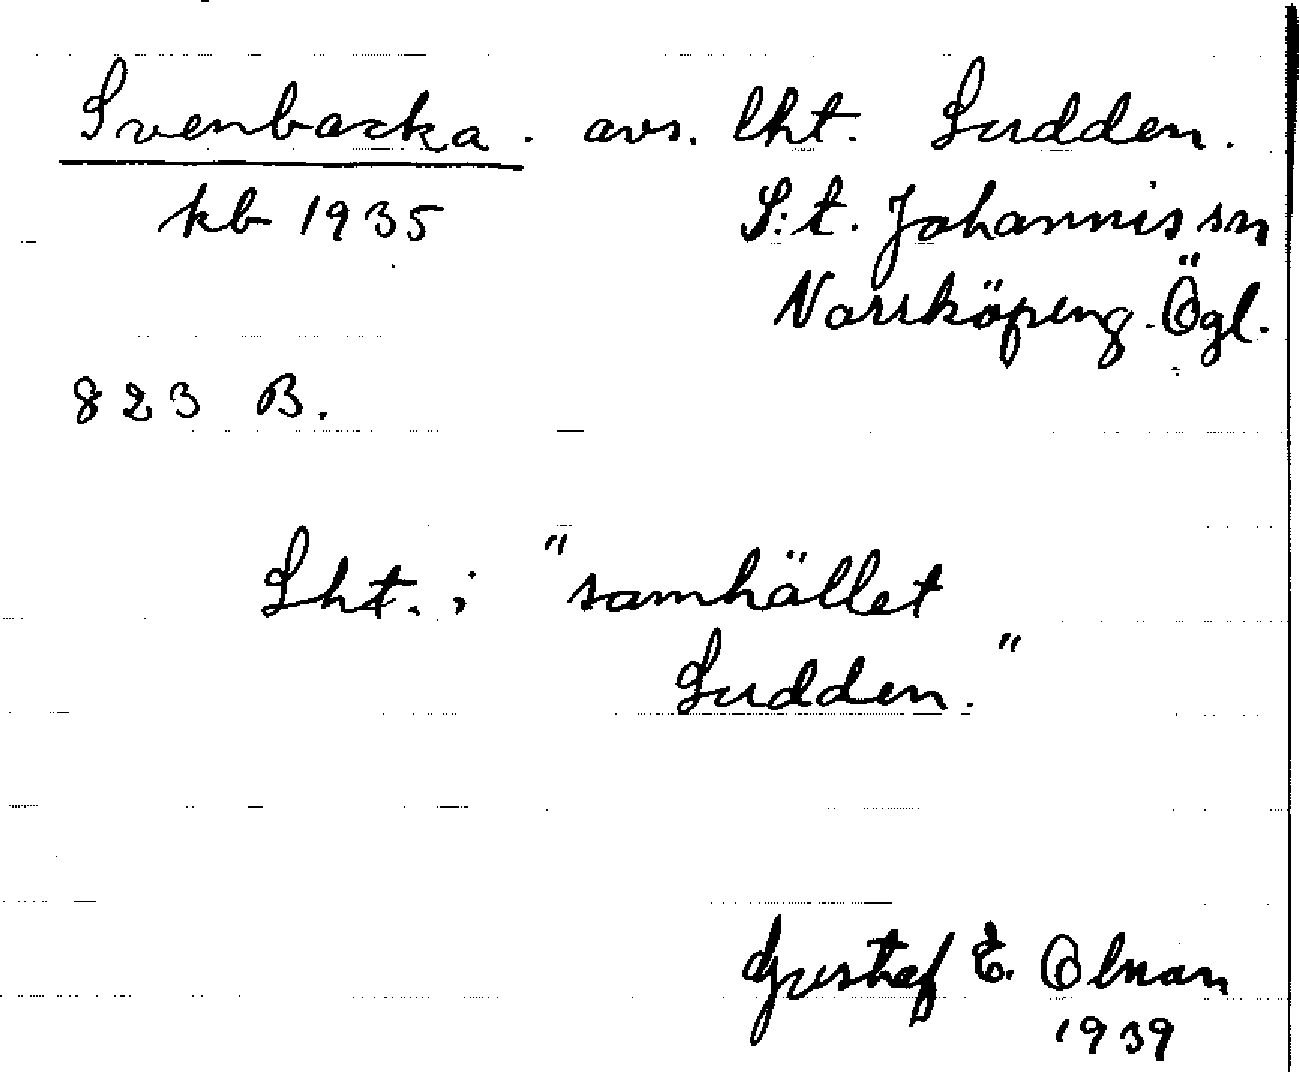 Svenbacka. avs. lht. Sudden.
kb 1935 S:t. Johannis sn
Norrköping. Ögl.
823 B.
Lht. i "samhället
Sudden."
Gustaf E. Olnan
1939